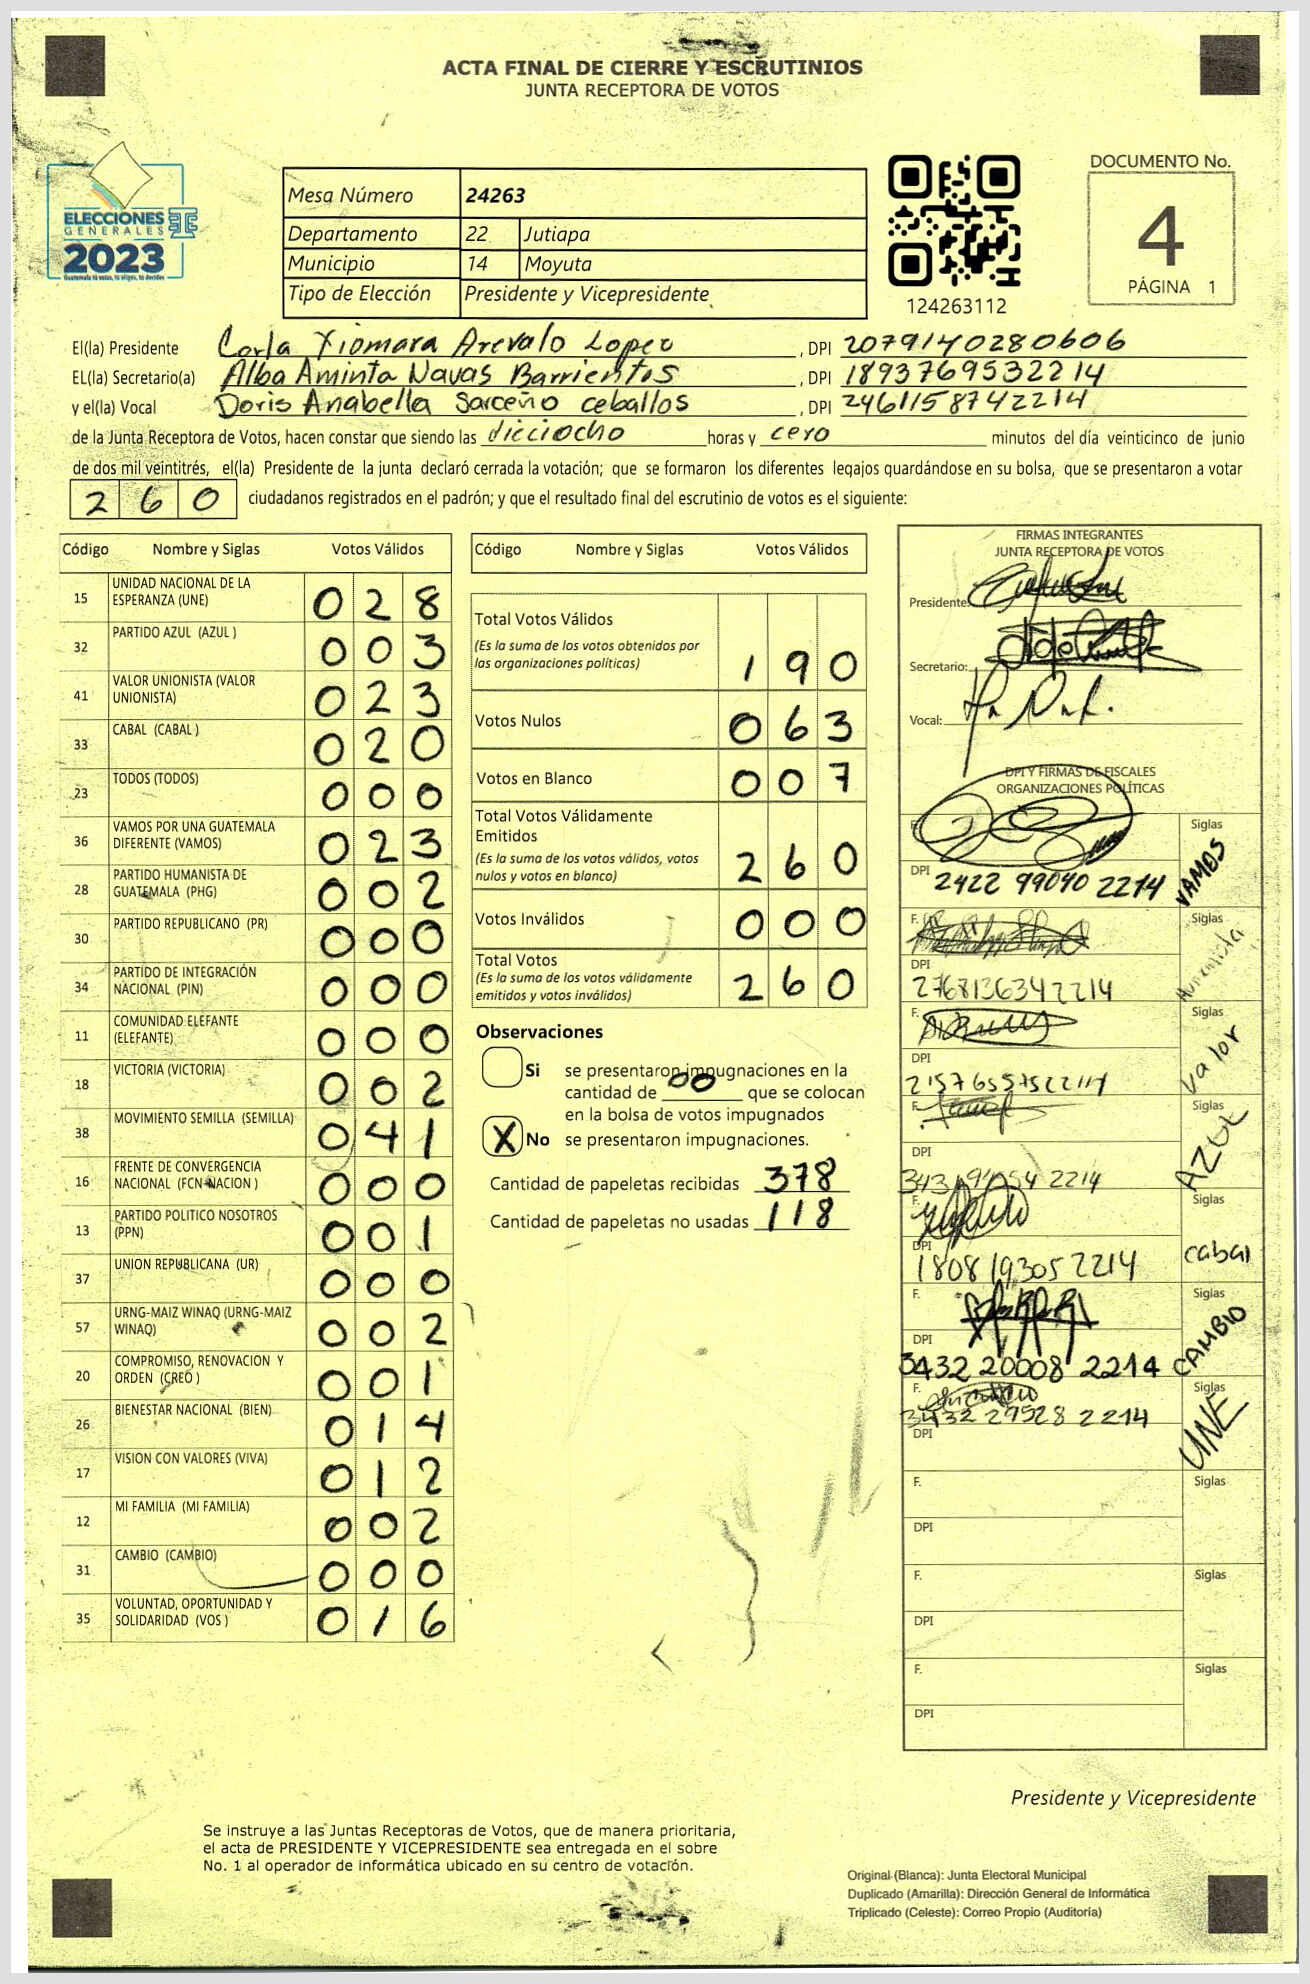 ACTA FINAL DE CIERRE Y ESCRUTINIOS
JUNTA RECEPTORA DE VOTOS
ELECCIONES
GENERALES
2023
Guatemala tú votas, tú eliges, tú decides
Mesa Número 24263
Departamento 22 Jutiapa
Municipio 14 Moyuta
Tipo de Elección Presidente y Vicepresidente
124263112
DOCUMENTO No.
4
PÁGINA 1
El(la) Presidente Carla Xiomara Arevalo Lopez, DPI 2079140280606
EL(la) Secretario(a) Alba Aminta Navas Barrientos, DPI 1893769532214
y el(la) Vocal Doris Anabella Sarceño ceballos, DPI 2461158742214
de la Junta Receptora de Votos, hacen constar que siendo las dieciocho horas y cero minutos del día veinticinco de junio
de dos mil veintitrés, el(la) Presidente de la junta declaró cerrada la votación; que se formaron los diferentes legajos guardándose en su bolsa, que se presentaron a votar
260 ciudadanos registrados en el padrón; y que el resultado final del escrutinio de votos es el siguiente:
Código Nombre y Siglas Votos Válidos
15 UNIDAD NACIONAL DE LA ESPERANZA (UNE) 028
32 PARTIDO AZUL (AZUL ) 003
41 VALOR UNIONISTA (VALOR UNIONISTA) 023
33 CABAL (CABAL ) 020
23 TODOS (TODOS) 000
36 VAMOS POR UNA GUATEMALA DIFERENTE (VAMOS) 023
28 PARTIDO HUMANISTA DE GUATEMALA (PHG) 002
30 PARTIDO REPUBLICANO (PR) 000
34 PARTIDO DE INTEGRACIÓN NACIONAL (PIN) 000
11 COMUNIDAD ELEFANTE (ELEFANTE) 000
18 VICTORIA (VICTORIA) 002
38 MOVIMIENTO SEMILLA (SEMILLA) 041
16 FRENTE DE CONVERGENCIA NACIONAL (FCN-NACION ) 000
13 PARTIDO POLITICO NOSOTROS (PPN) 001
37 UNION REPUBLICANA (UR) 000
57 URNG-MAIZ WINAQ (URNG-MAIZ WINAQ) 002
20 COMPROMISO, RENOVACION Y ORDEN (CREO ) 001
26 BIENESTAR NACIONAL (BIEN) 014
17 VISION CON VALORES (VIVA) 012
12 MI FAMILIA (MI FAMILIA) 002
31 CAMBIO (CAMBIO) 000
35 VOLUNTAD, OPORTUNIDAD Y SOLIDARIDAD (VOS ) 016
Código Nombre y Siglas Votos Válidos
Total Votos Válidos 190
(Es la suma de los votos obtenidos por
las organizaciones políticas)
Votos Nulos 063
Votos en Blanco 007
Total Votos Válidamente
Emitidos 260
(Es la suma de los votos válidos, votos
nulos y votos en blanco)
Votos Inválidos 000
Total Votos 260
(Es la suma de los votos válidamente
emitidos y votos inválidos)
Observaciones
Si se presentaron impugnaciones en la
cantidad de 00 que se colocan
en la bolsa de votos impugnados
X No se presentaron impugnaciones.
Cantidad de papeletas recibidas 378
Cantidad de papeletas no usadas 118
FIRMAS INTEGRANTES
JUNTA RECEPTORA DE VOTOS
Presidente:
Secretario:
Vocal:
DPI Y FIRMAS DE FISCALES
ORGANIZACIONES POLÍTICAS
F. Siglas VAMOS
DPI 2422 99040 2214
F. Siglas
DPI 2768136342214
F. Siglas Valor
DPI
F. Siglas AZUL
DPI
F. Siglas cabal
DPI 1808 19305 2214
F. Siglas CAMBIO
DPI 3432 20008 2214
F. Siglas UNE
3432 29528 2214
DPI
F. Siglas
DPI
F. Siglas
DPI
F. Siglas
DPI
Presidente y Vicepresidente
Se instruye a las Juntas Receptoras de Votos, que de manera prioritaria,
el acta de PRESIDENTE Y VICEPRESIDENTE sea entregada en el sobre
No. 1 al operador de informática ubicado en su centro de votación.
Original (Blanca): Junta Electoral Municipal
Duplicado (Amarilla): Dirección General de Informática
Triplicado (Celeste): Correo Propio (Auditoría)